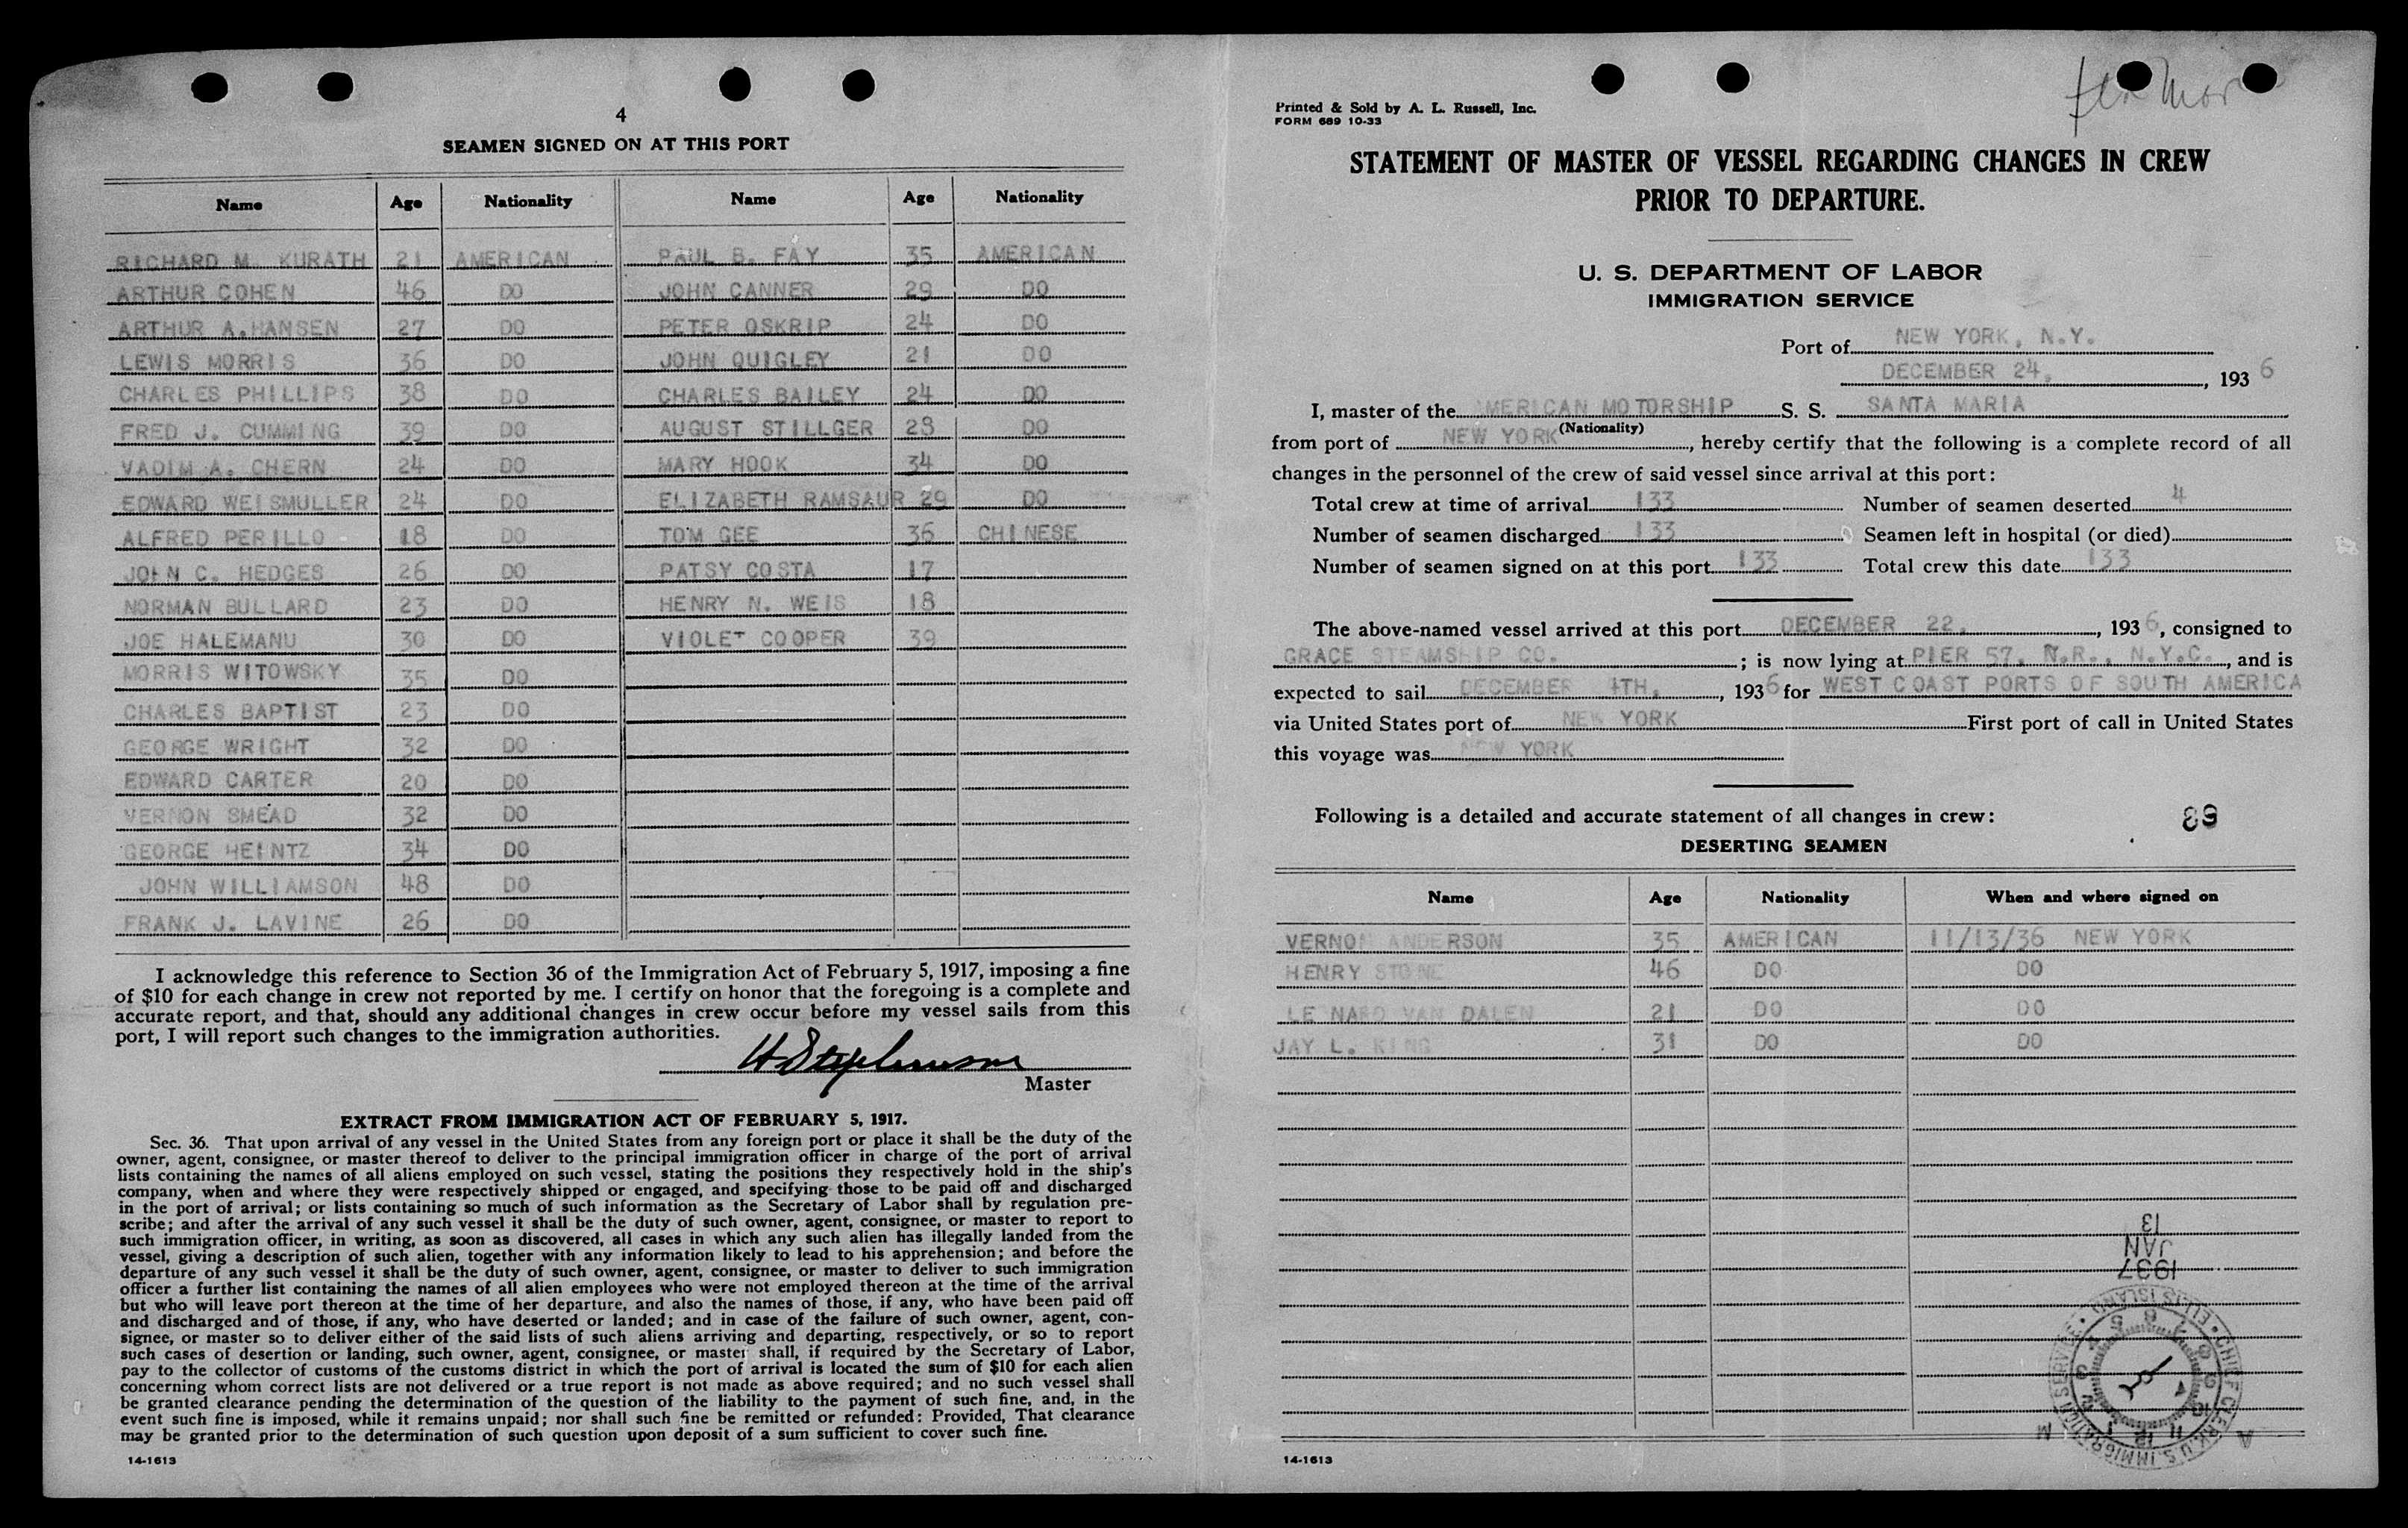 4
SEAMEN SIGNED ON AT THIS PORT
Name Age Nationality Name Age Nationality
RICHARD M. KURATH 21 AMERICAN PAUL B. FAY 35 AMERICAN
ARTHUR COHEN 46 DO JOHN CANNER 29 DO
ARTHUR A. HANSEN 27 DO PETER OSKRIP 24 DO
LEWIS MORRIS 36 DO JOHN QUIGLEY 21 DO
CHARLES PHILLIPS 38 DO CHARLES BAILEY 24 DO
FRED J. CUMMING 39 DO AUGUST STILLGER 28 DO
VADIM A. CHERN 24 DO MARY HOOK 34 DO
EDWARD WEISMULLER 24 DO ELIZABETH RAMSAUR 29 DO
ALFRED PERILLO 18 DO TOM GEE 36 CHINESE
JOHN C. HEDGES 26 DO PATSY COSTA 17
NORMAN BULLARD 23 DO HENRY N. WEIS 18
JOE HALEMANU 30 DO VIOLET COOPER 39
MORRIS WITOWSKY 35 DO
CHARLES BAPTIST 23 DO
GEORGE WRIGHT 32 DO
EDWARD CARTER 20 DO
VERNON SMEAD 32 DO
GEORGE HEINTZ 34 DO
JOHN WILLIAMSON 48 DO
FRANK J. LAVINE 26 DO
I acknowledge this reference to Section 36 of the Immigration Act of February 5, 1917, imposing a fine
of $10 for each change in crew not reported by me. I certify on honor that the foregoing is a complete and
accurate report, and that, should any additional changes in crew occur before my vessel sails from this
port, I will report such changes to the immigration authorities.
H Stephenson
Master
EXTRACT FROM IMMIGRATION ACT OF FEBRUARY 5, 1917.
Sec. 36. That upon arrival of any vessel in the United States from any foreign port or place it shall be the duty of the
owner, agent, consignee, or master thereof to deliver to the principal immigration officer in charge of the port of arrival
lists containing the names of all aliens employed on such vessel, stating the positions they respectively hold in the ship's
company, when and where they were respectively shipped or engaged, and specifying those to be paid off and discharged
in the port of arrival; or lists containing so much of such information as the Secretary of Labor shall by regulation pre-
scribe; and after the arrival of any such vessel it shall be the duty of such owner, agent, consignee, or master to report to
such immigration officer, in writing, as soon as discovered, all cases in which any such alien has illegally landed from the
vessel, giving a description of such alien, together with any information likely to lead to his apprehension; and before the
departure of any such vessel it shall be the duty of such owner, agent, consignee, or master to deliver to such immigration
officer a further list containing the names of all alien employees who were not employed thereon at the time of the arrival
but who will leave port thereon at the time of her departure, and also the names of those, if any, who have been paid off
and discharged and of those, if any, who have deserted or landed; and in case of the failure of such owner, agent, con-
signee, or master so to deliver either of the said lists of such aliens arriving and departing, respectively, or so to report
such cases of desertion or landing, such owner, agent, consignee, or master shall, if required by the Secretary of Labor,
pay to the collector of customs of the customs district in which the port of arrival is located the sum of $10 for each alien
concerning whom correct lists are not delivered or a true report is not made as above required; and no such vessel shall
be granted clearance pending the determination of the question of the liability to the payment of such fine, and, in the
event such fine is imposed, while it remains unpaid; nor shall such fine be remitted or refunded: Provided, That clearance
may be granted prior to the determination of such question upon deposit of a sum sufficient to cover such fine.
14-1613
Printed & Sold by A. L. Russell, Inc.
FORM 689 10-33
STATEMENT OF MASTER OF VESSEL REGARDING CHANGES IN CREW
PRIOR TO DEPARTURE.
U. S. DEPARTMENT OF LABOR
IMMIGRATION SERVICE
Port of NEW YORK, N.Y.
DECEMBER 24, , 1936
I, master of the MERICAN MOTORSHIP S. S. SANTA MARIA
(Nationality)
from port of NEW YORK , hereby certify that the following is a complete record of all
changes in the personnel of the crew of said vessel since arrival at this port:
Total crew at time of arrival 133 Number of seamen deserted 4
Number of seamen discharged 133 Seamen left in hospital (or died)
Number of seamen signed on at this port 133 Total crew this date 133
The above-named vessel arrived at this port DECEMBER 22, , 1936, consigned to
GRACE STEAMSHIP CO. ; is now lying at PIER 57, N.R., N.Y.C. , and is
expected to sail DECEMBER 4TH, , 1936 for WEST COAST PORTS OF SOUTH AMERICA
via United States port of NEW YORK First port of call in United States
this voyage was NEW YORK
Following is a detailed and accurate statement of all changes in crew: 89
DESERTING SEAMEN
Name Age Nationality When and where signed on
VERNON ANDERSON 35 AMERICAN 11/13/36 NEW YORK
HENRY STONE 46 DO DO
LE NARD VAN DALEN 21 DO DO
JAY L. KING 31 DO DO
13
JAN
1937
CHIEF CLERK, U.S. IMMIGRATION SERVICE • ELLIS ISLAND •
A M
14-1613